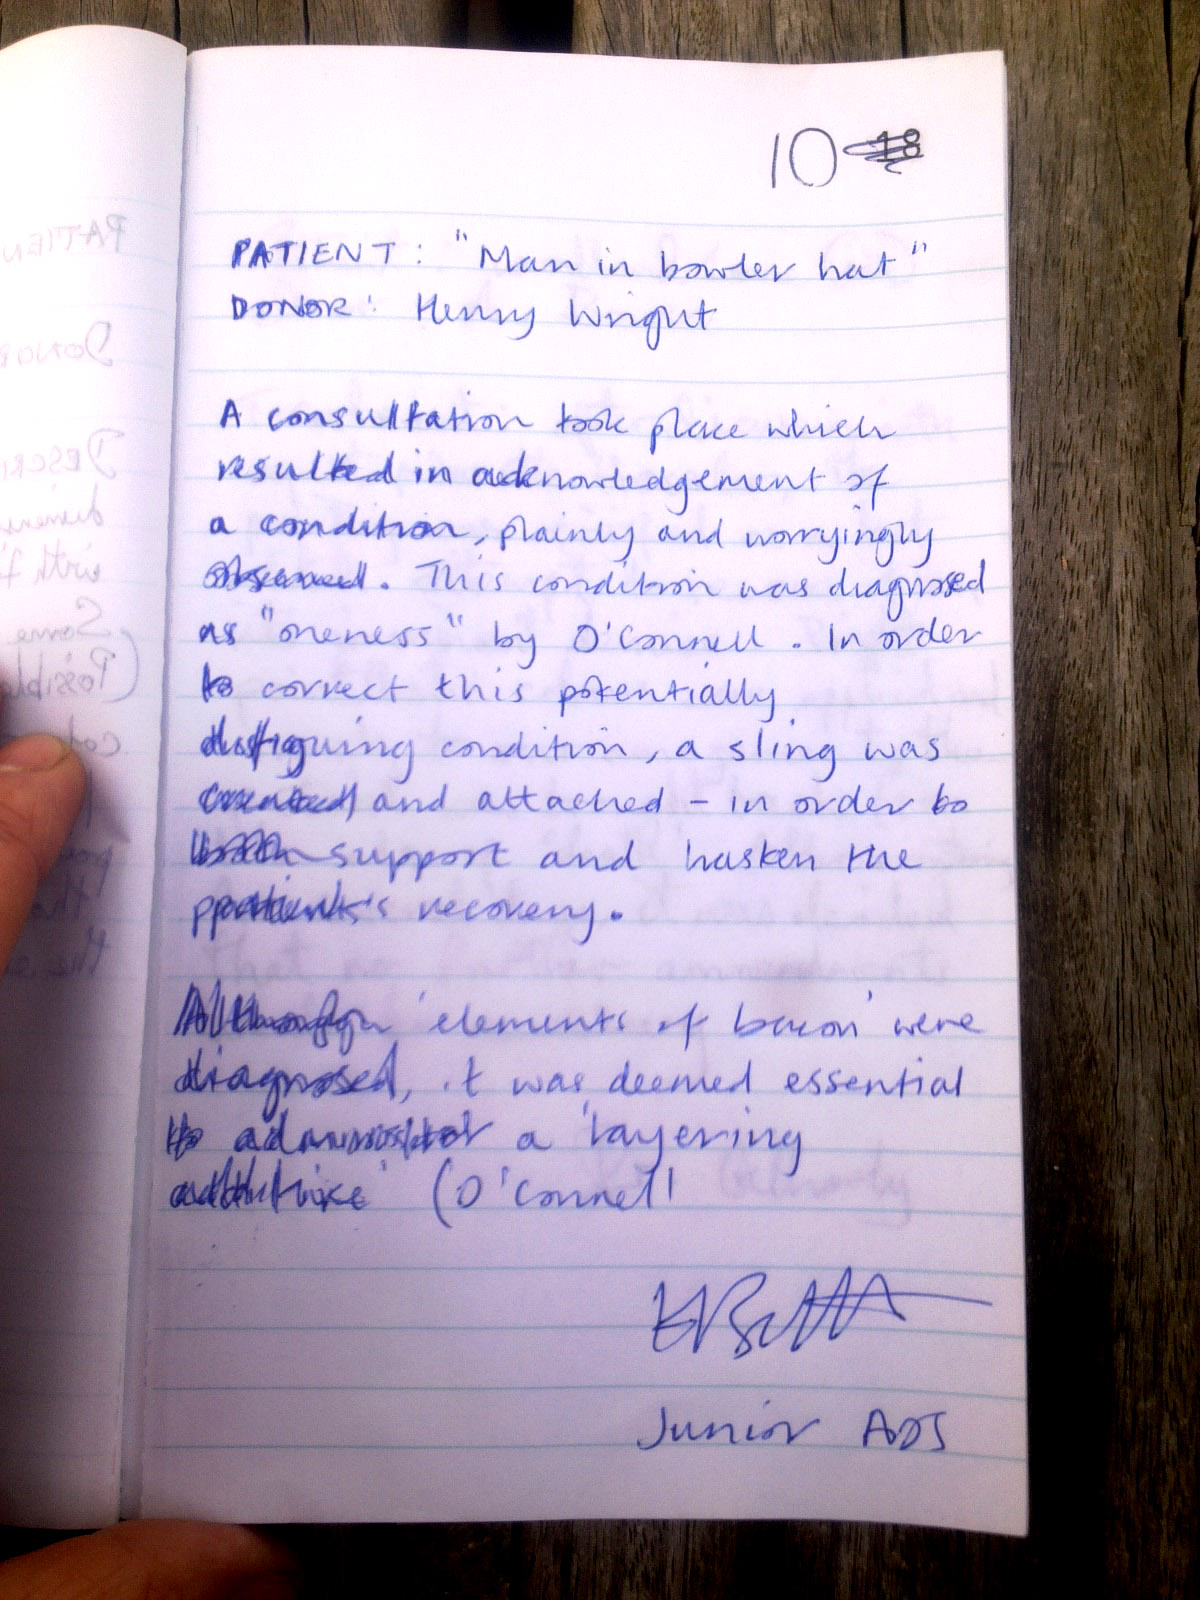 10
PATIENT: "Man in bowler hat"
DONOR: Henry Wright
A consultation took place which
resulted in acknowledgement of
a condition, plainly and worryingly
observed. This condition was diagnosed
as "oneness" by O'Connell. In order
to correct this potentially
disfiguring condition, a sling was
created, and attached - in order to
support and hasten the
patient's recovery.
Although 'elements of bacon' were
diagnosed, it was deemed essential
to administer a 'layering
(O'Connell
Junior ADS
PATIEN
DONOR
DESCRI
with
Some
(Possible